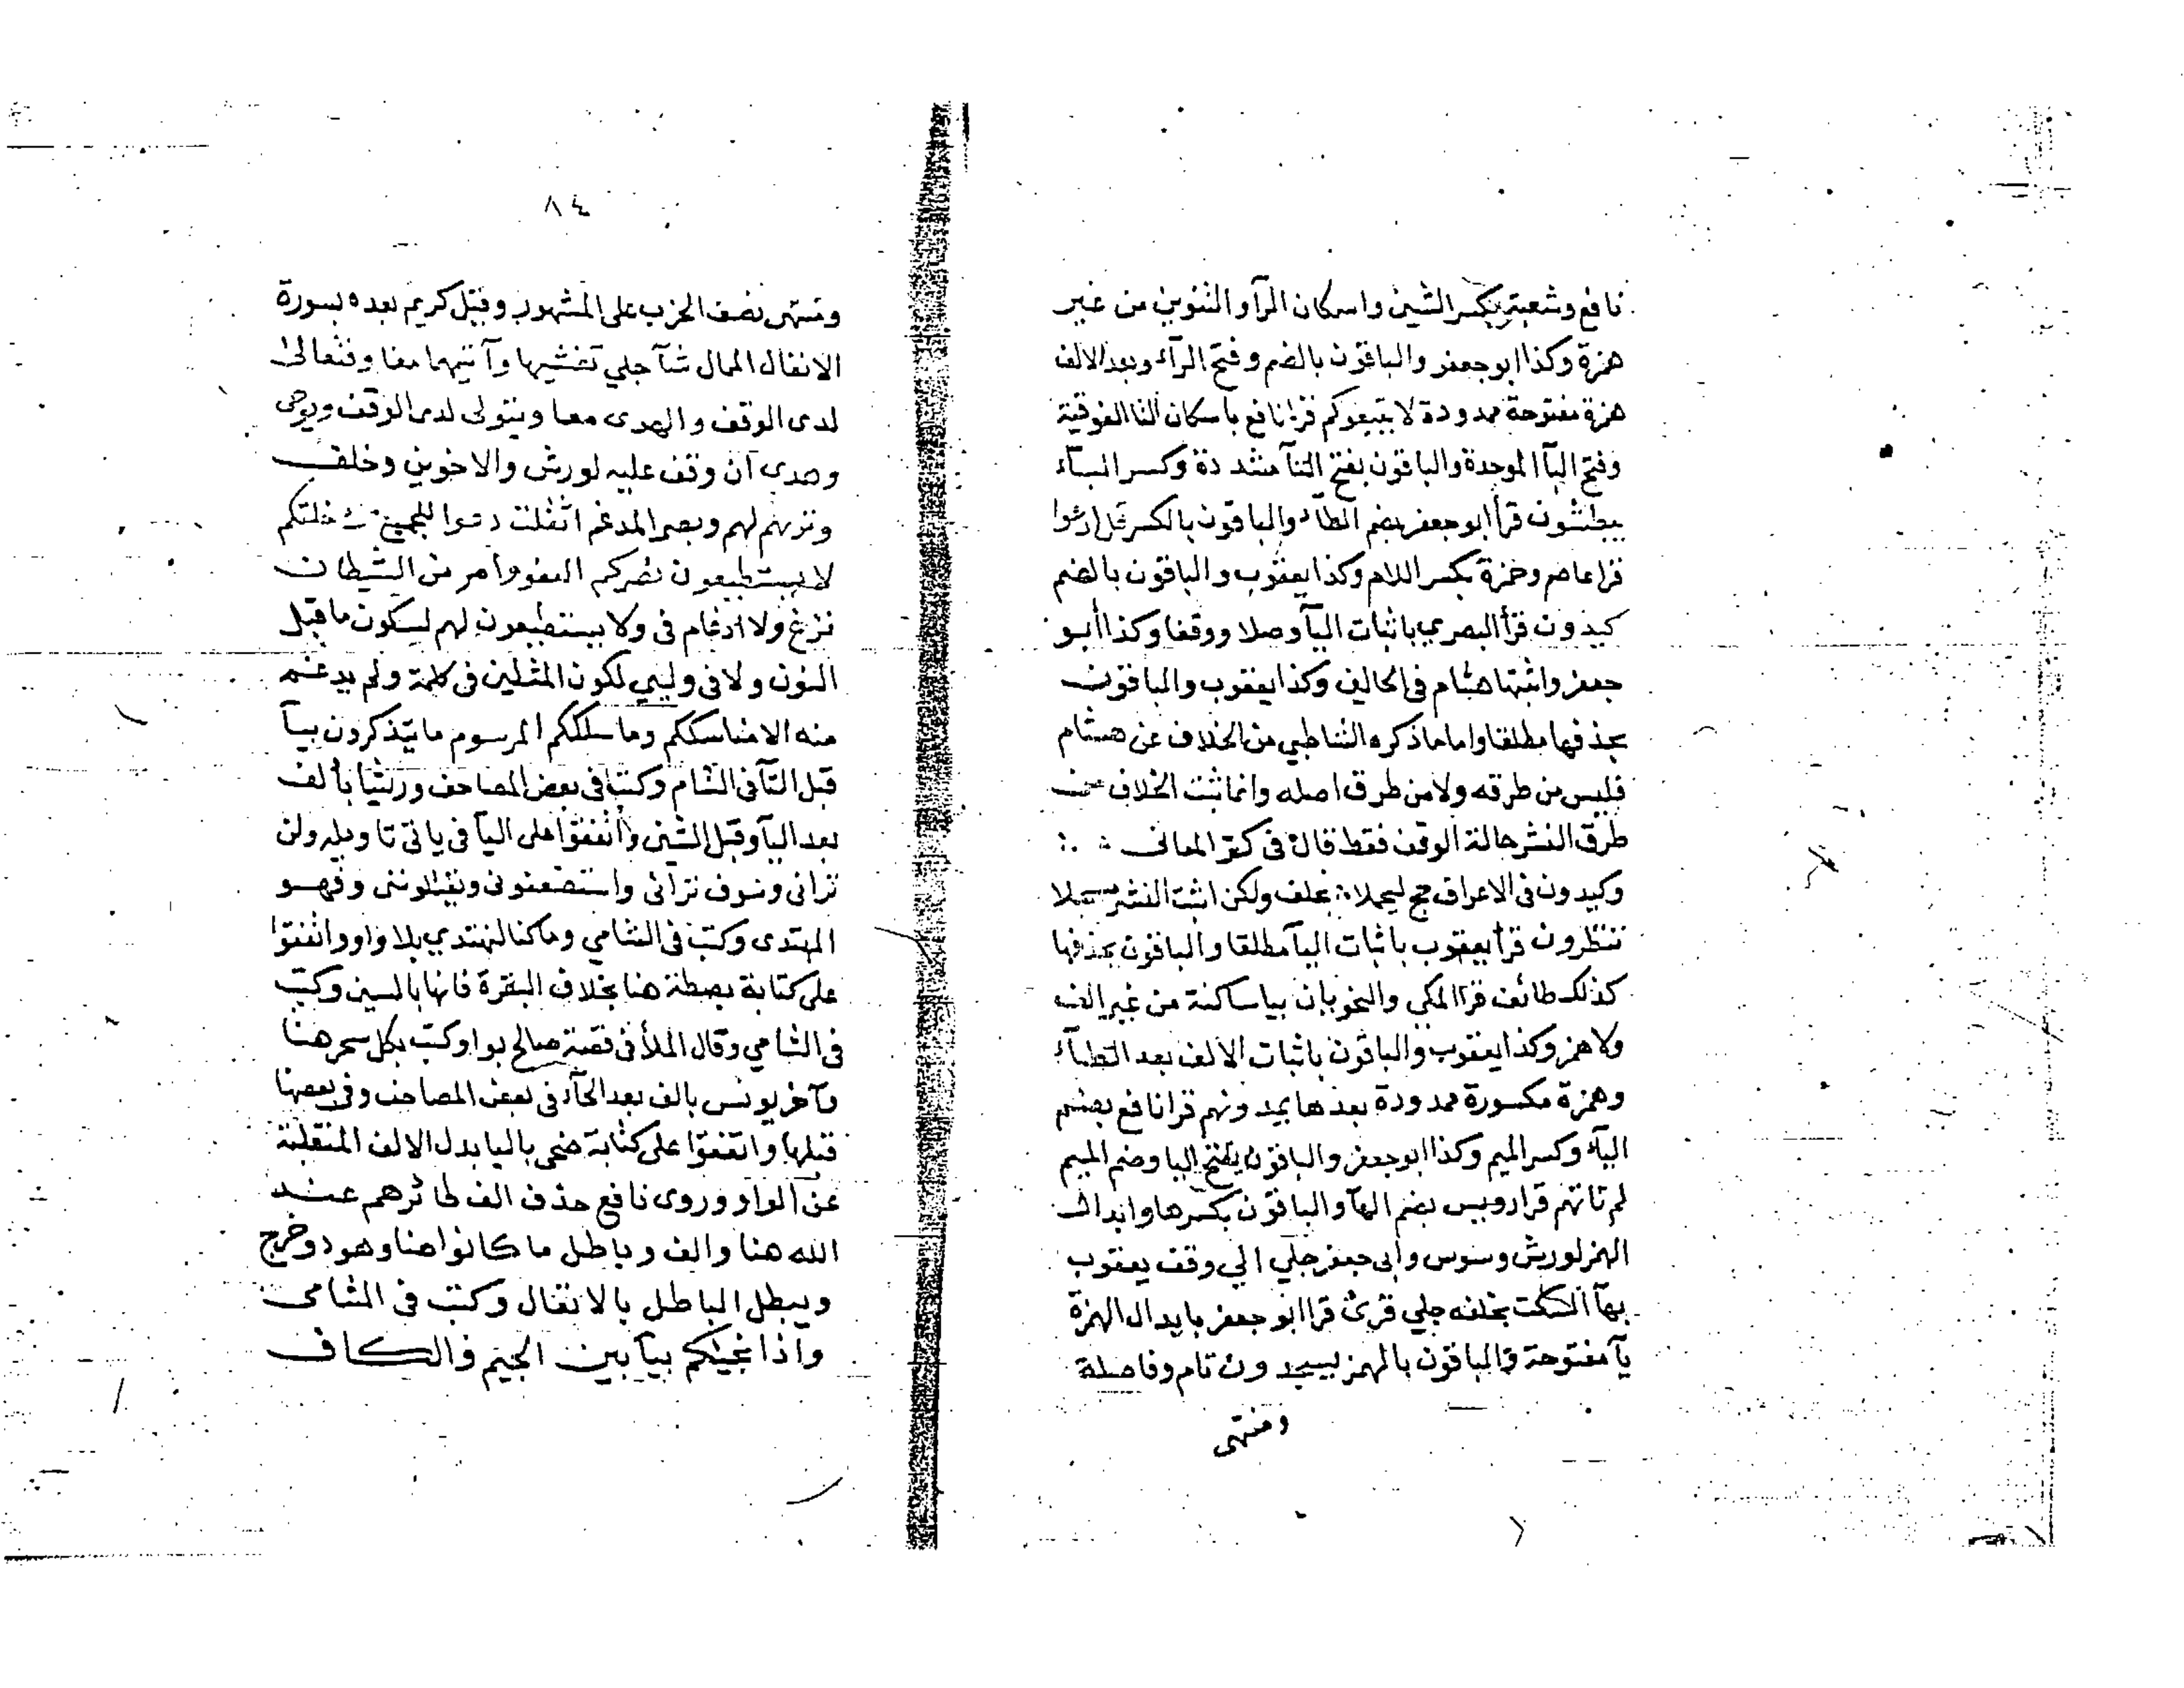 نافع وشعبة بكسر الشين واسكان الرآ والتنوين من غير
همزة وكذا ابو جعفر والباقون بالضم وفتح الرآء وبعد الالف
همزة مفتوحة ممدودة لا يتبعوكم قرا نافع باسكان التا الفوقية
وفتح البآ الموحدة والباقون بفتح التآ مشددة وكسر البآء
يبطشون قرأ ابو جعفر بضم الطآء والباقون بالكسر قل ادعوا
قرا عاصم وحمزة بكسر اللام وكذا يعقوب والباقون بالضم
كيدون قرأ البصري باثبات اليآ وصلا ووقفا وكذا أبو
جعفر واثبتها هشام في الحالين وكذا يعقوب والباقون
بحذفها مطلقا واما ما ذكره الشاطبي من الخلاف عن هشام
فليس من طرقه ولا من طرق اصله وانما ثبت الخلاف من
طرق النشر حالة الوقف فقط قال في كنز المعانى
وكيدون في الاعراف حج ليحملا بخلف ولكن اثبت النشر مسجلا
تنظرون قرأ يعقوب باثبات اليآ مطلقا والباقون بحذفها
كذلك طائف قرا المكي والنحويان بيا ساكنة من غير الف
ولا همز وكذا يعقوب والباقون باثبات الالف بعد الطآء
وهمزة مكسورة ممدودة بعدها يمدونهم قرا نافع بضم
اليآء وكسر الميم وكذا ابو جعفر والباقون بفتح اليا وضم الميم
لم تاتهم قرا رويس بضم الهآ والباقون بكسرها وابدال
الهمز لورش وسوس وأبى جعفر جلي الي وقف يعقوب
بهآ السكت بخلفه جلي قرئ قرا ابو جعفر بابدال الهمزة
يآ مفتوحة والباقون بالهمز يسجدون تام وفاصلة
ومنتهى
٨٤
ومنتهى نصف الحزب على المشهور وقيل كريم بعده بسورة
الانفال الممال شآ جلي تغشيها وآتيهما معا وفتعالى
لدى الوقف والهدى معا ويتولى لدى الوقف ويوحى
وهدى آن وقف عليه لورش والاخوين وخلف
وتريهم لهم وبصر المدغم اثقلت دعوا للجميع خلقكم
لا يستطيعون نصركم العفو وامر من الشيطان
نزغ ولا ادغام في ولا يستطيعون لهم لسكون ما قبل
النون ولا في وليي لكون المثلين في كلمة ولم يدغم
منه الا مناسككم وما سلككم المرسوم ما يتذكرون بيآ
قبل التآ في الشام وكتبا في بعض المصاحف وريشا بألف
بعد اليآ وقبل الشين واتفقوا على اليآ في ياتي تاويله ولن
تراني وسوف تراني واستضعفوني ويقتلونني وفهو
المهتدى وكتب في الشامي وما كنا لنهتدي بلا واو واتفقوا
على كتابة بصطة هنا بخلاف البقرة فانها بالسين وكتب
في الشامي وقال الملأ في قصة صالح بواو وكتب بكل سحر هنا
وآخر يونس بالف بعد الحآء في بعض المصاحف وفي بعضها
قبلها واتفقوا على كتابة ضحى باليا بدل الالف المنقلبة
عن الواو وروى نافع حذف الف طائرهم عند
الله هنا والف وباطل ما كانوا هنا وهود وخرج
ويبطل الباطل بالانفال وكتب في الشامى
واذا نجيكم بيآ بين الجيم والكاف